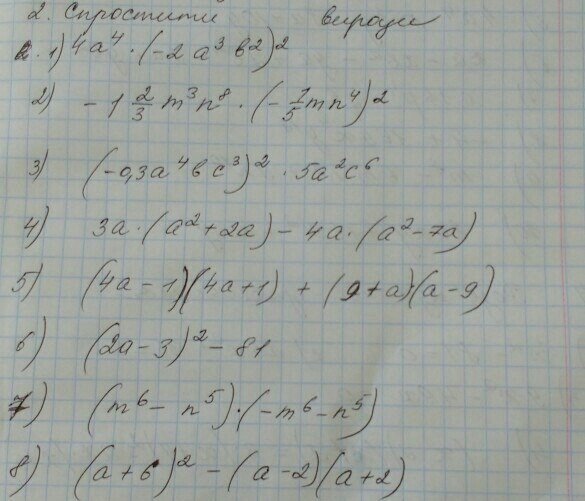 2. Спростити вирази
2. 1) 4a⁴ · (-2a³b²)²
2) -1 2/3 m³n⁸ · (-1/5 mn⁴)²
3) (-0,3a⁴bc³)² · 5a²c⁶
4) 3a · (a² + 2a) - 4a · (a² - 7a)
5) (4a - 1)(4a + 1) + (9 + a)(a - 9)
6) (2a - 3)² - 81
7) (m⁶ - n⁵) · (-m⁶ - n⁵)
8) (a + 6)² - (a - 2)(a + 2)